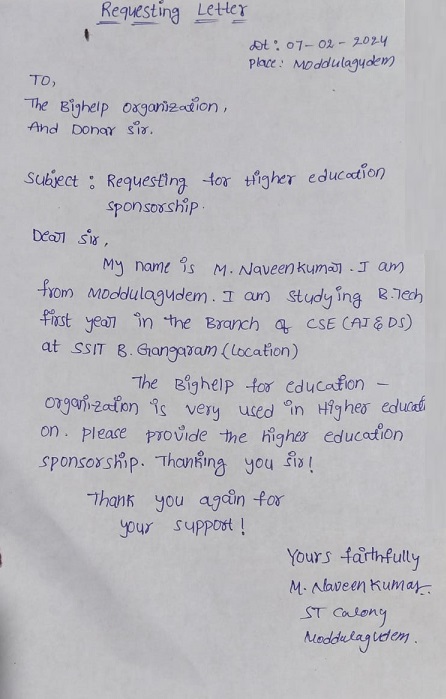 Requesting Letter
dt: 07-02-2024
place: Moddulagudem
TO,
The Bighelp organization,
And Donar sir.
Subject: Requesting for Higher education
sponsorship.
Dear sir,
My name is M. Naveen kumar. I am
from Moddulagudem. I am studying B.Tech
first year in the Branch of CSE (AI & DS)
at SSIT B. Gangaram (Location)
The Bighelp for education -
organization is very used in Higher educati
on. please provide the higher education
sponsorship. Thanking you sir!
Thank you again for
your support!
Yours faithfully
M. Naveen Kumar.
ST Calony
Moddulagudem.